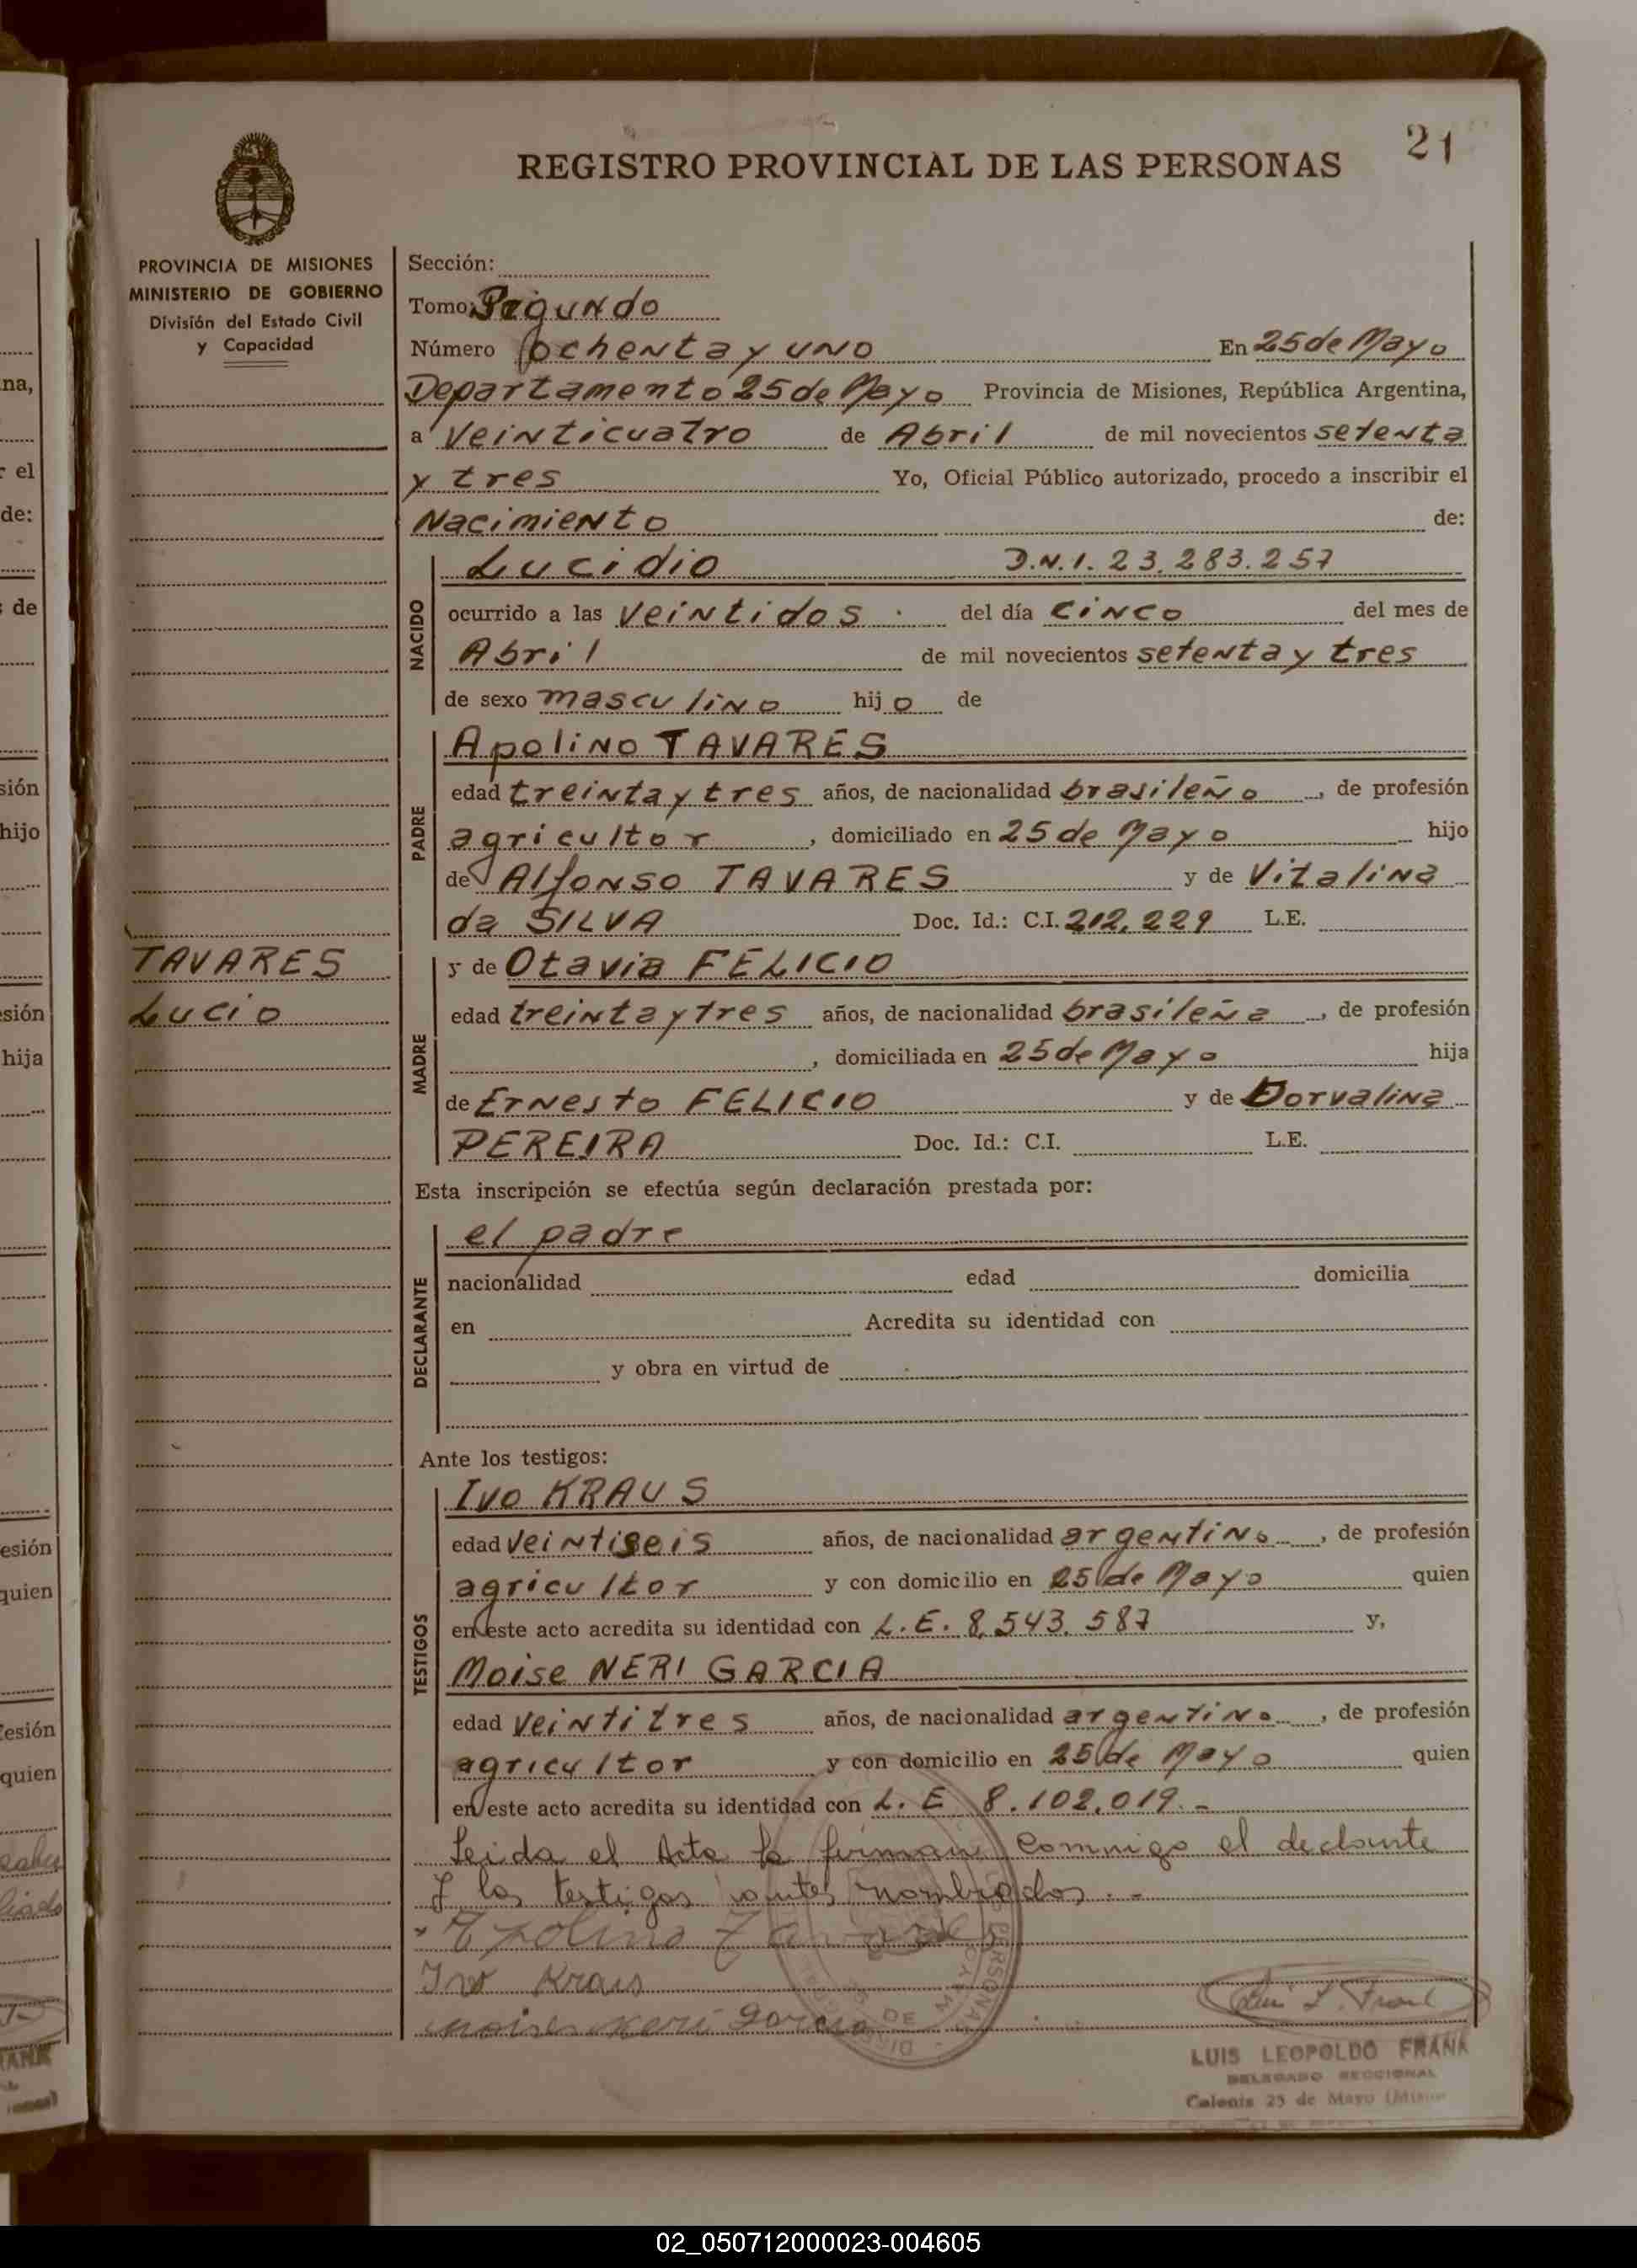 21
REGISTRO PROVINCIAL DE LAS PERSONAS
PROVINCIA DE MISIONES
MINISTERIO DE GOBIERNO
División del Estado Civil
y Capacidad
Sección:
Tomo: Segundo
Número ochenta y uno En 25 de Mayo
Departamento 25 de Mayo Provincia de Misiones, República Argentina,
a veinticuatro de Abril de mil novecientos setenta
y tres Yo, Oficial Público autorizado, procedo a inscribir el
Nacimiento de:
NACIDO
Lucidio D.N.I. 23.283.257
ocurrido a las veintidos del día cinco del mes de
Abril de mil novecientos setenta y tres
de sexo masculino hijo de
PADRE
Apolino TAVARES
edad treinta y tres años, de nacionalidad brasileño, de profesión
agricultor, domiciliado en 25 de Mayo hijo
de Alfonso TAVARES y de Vitalina
da SILVA Doc. Id.: C.I. 212.229 L.E.
TAVARES
Lucio
MADRE
y de Otavia FELICIO
edad treinta y tres años, de nacionalidad brasileña, de profesión
, domiciliada en 25 de Mayo hija
de Ernesto FELICIO y de Dorvalina
PEREIRA Doc. Id.: C.I. L.E.
Esta inscripción se efectúa según declaración prestada por:
DECLARANTE
el padre
nacionalidad edad domicilia
en Acredita su identidad con
y obra en virtud de
Ante los testigos:
TESTIGOS
Ivo KRAUS
edad veintiseis años, de nacionalidad argentino, de profesión
agricultor y con domicilio en 25 de Mayo quien
en este acto acredita su identidad con L.E. 8.543.587 y,
Moise NERI GARCIA
edad veintitres años, de nacionalidad argentino, de profesión
agricultor y con domicilio en 25 de Mayo quien
en este acto acredita su identidad con L.E 8.102.019.-
Leida el Acta la firman conmigo el declante
y los testigos antes nombrados.-
Apolino Tavares
Ivo Kraus
moises neri Garcia
Luis L. Frank
LUIS LEOPOLDO FRANK
DELEGADO SECCIONAL
Colonia 25 de Mayo
02_050712000023-004605